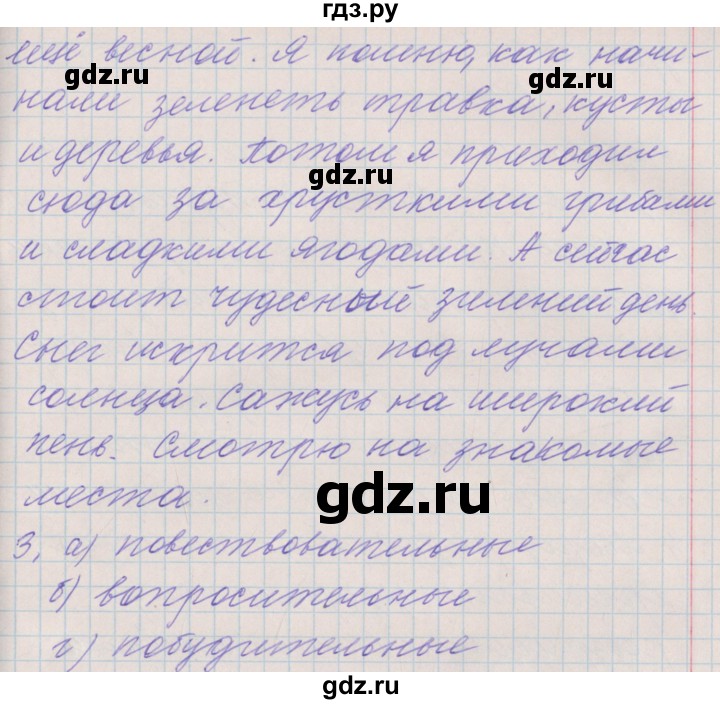 гдз.ру
ещё весной. Я помню, как начи-
gdz.ru
gdz.ru
нали зеленеть травка, кусты
и деревья. Потом я приходил
gdz.ru
сюда за хрусткими грибами
и сладкими ягодами. А сейчас
стоит чудесный зимний день.
Снег искрится под лучами
солнца. Сажусь на широкий
пень. Смотрю на знакомые
места.
gdz.ru
3. а) повествовательные
б) вопросительные
г) побудительные
gdz.ru